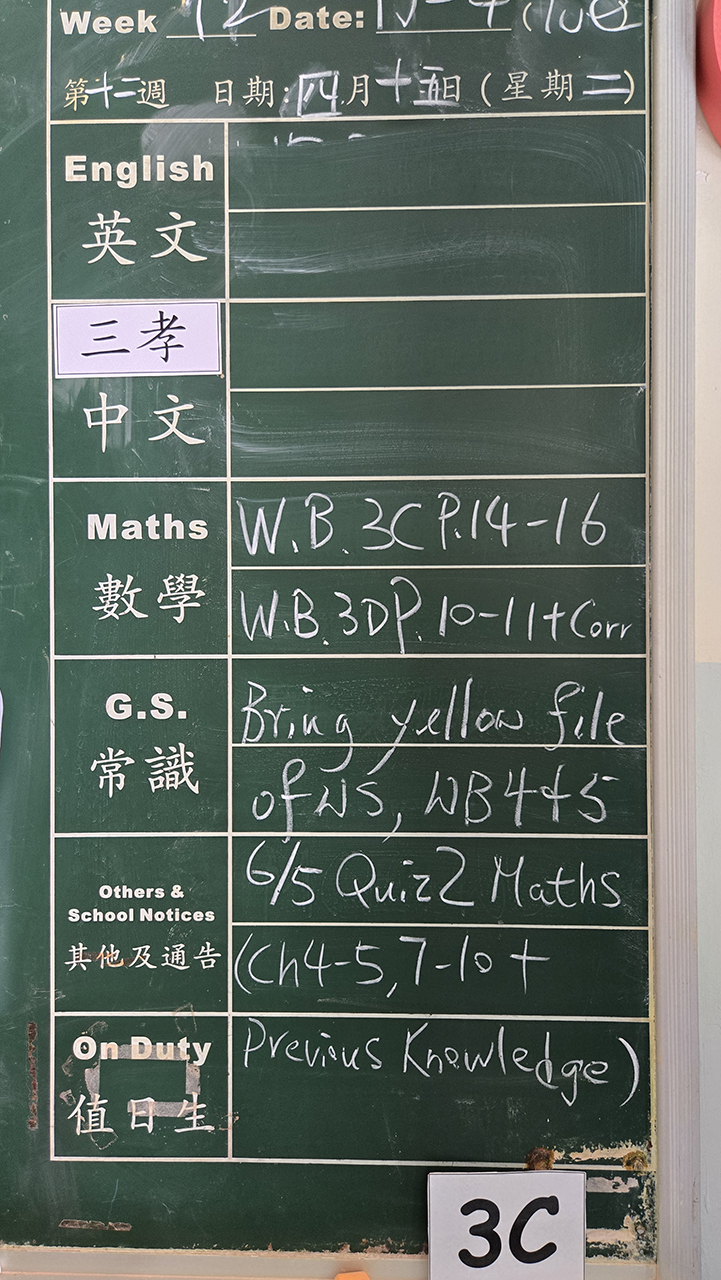 Week 12 Date: 15-4 (Tue
第十二週 日期:四月十五日(星期二)
English
英文
三孝
中文
Maths
數學
W.B. 3C P.14-16
W.B. 3D P.10-11 + Corr
G.S.
常識
Bring yellow file
of WS, WB4+5
Others &
School Notices
其他及通告
6/5 Quiz 2 Maths
(Ch4-5, 7-10 +
On Duty
值日生
Previous Knowledge)
3C